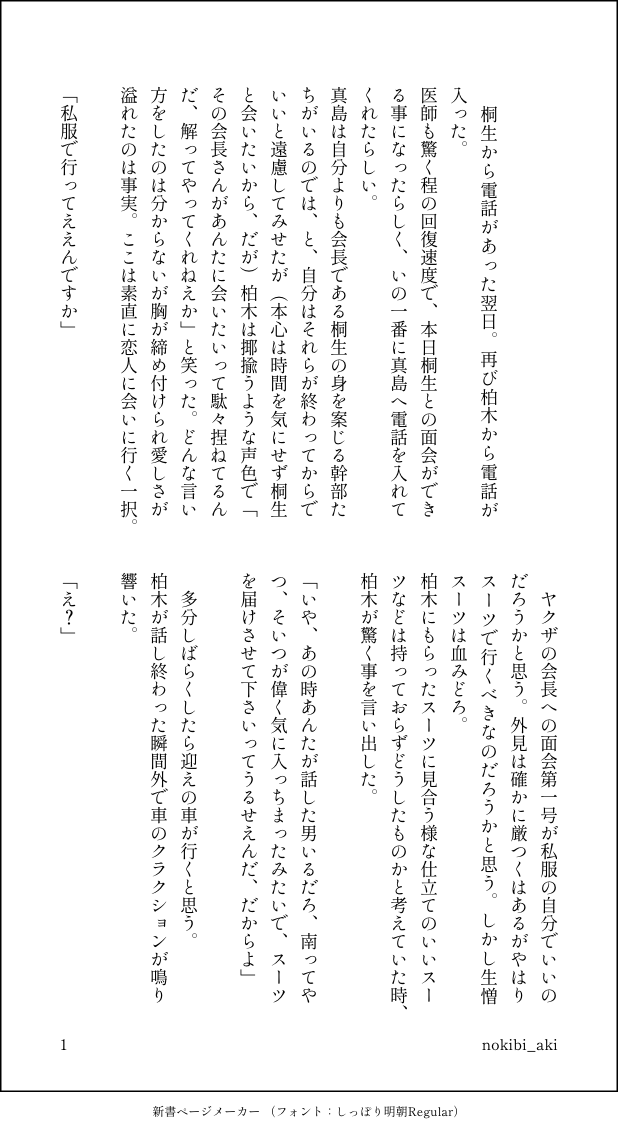 桐生から電話があった翌日。再び柏木から電話が
入った。
医師も驚く程の回復速度で、本日桐生との面会ができ
る事になったらしく、いの一番に真島へ電話を入れて
くれたらしい。
真島は自分よりも会長である桐生の身を案じる幹部た
ちがいるのでは、と、自分はそれらが終わってからで
いいと遠慮してみせたが（本心は時間を気にせず桐生
と会いたいから、だが）柏木は揶揄うような声色で「
その会長さんがあんたに会いたいって駄々捏ねてるん
だ、解ってやってくれねえか」と笑った。どんな言い
方をしたのは分からないが胸が締め付けられ愛しさが
溢れたのは事実。ここは素直に恋人に会いに行く一択。
「私服で行ってええんですか」
ヤクザの会長への面会第一号が私服の自分でいいの
だろうかと思う。外見は確かに厳つくはあるがやはり
スーツで行くべきなのだろうかと思う。しかし生憎
スーツは血みどろ。
柏木にもらったスーツに見合う様な仕立てのいいスー
ツなどは持っておらずどうしたものかと考えていた時、
柏木が驚く事を言い出した。
「いや、あの時あんたが話した男いるだろ、南ってや
つ、そいつが偉く気に入っちまったみたいで、スーツ
を届けさせて下さいってうるせえんだ、だからよ」
多分しばらくしたら迎えの車が行くと思う。
柏木が話し終わった瞬間外で車のクラクションが鳴り
響いた。
「え？」
1
nokibi_aki
新書ページメーカー（フォント：しっぽり明朝Regular）